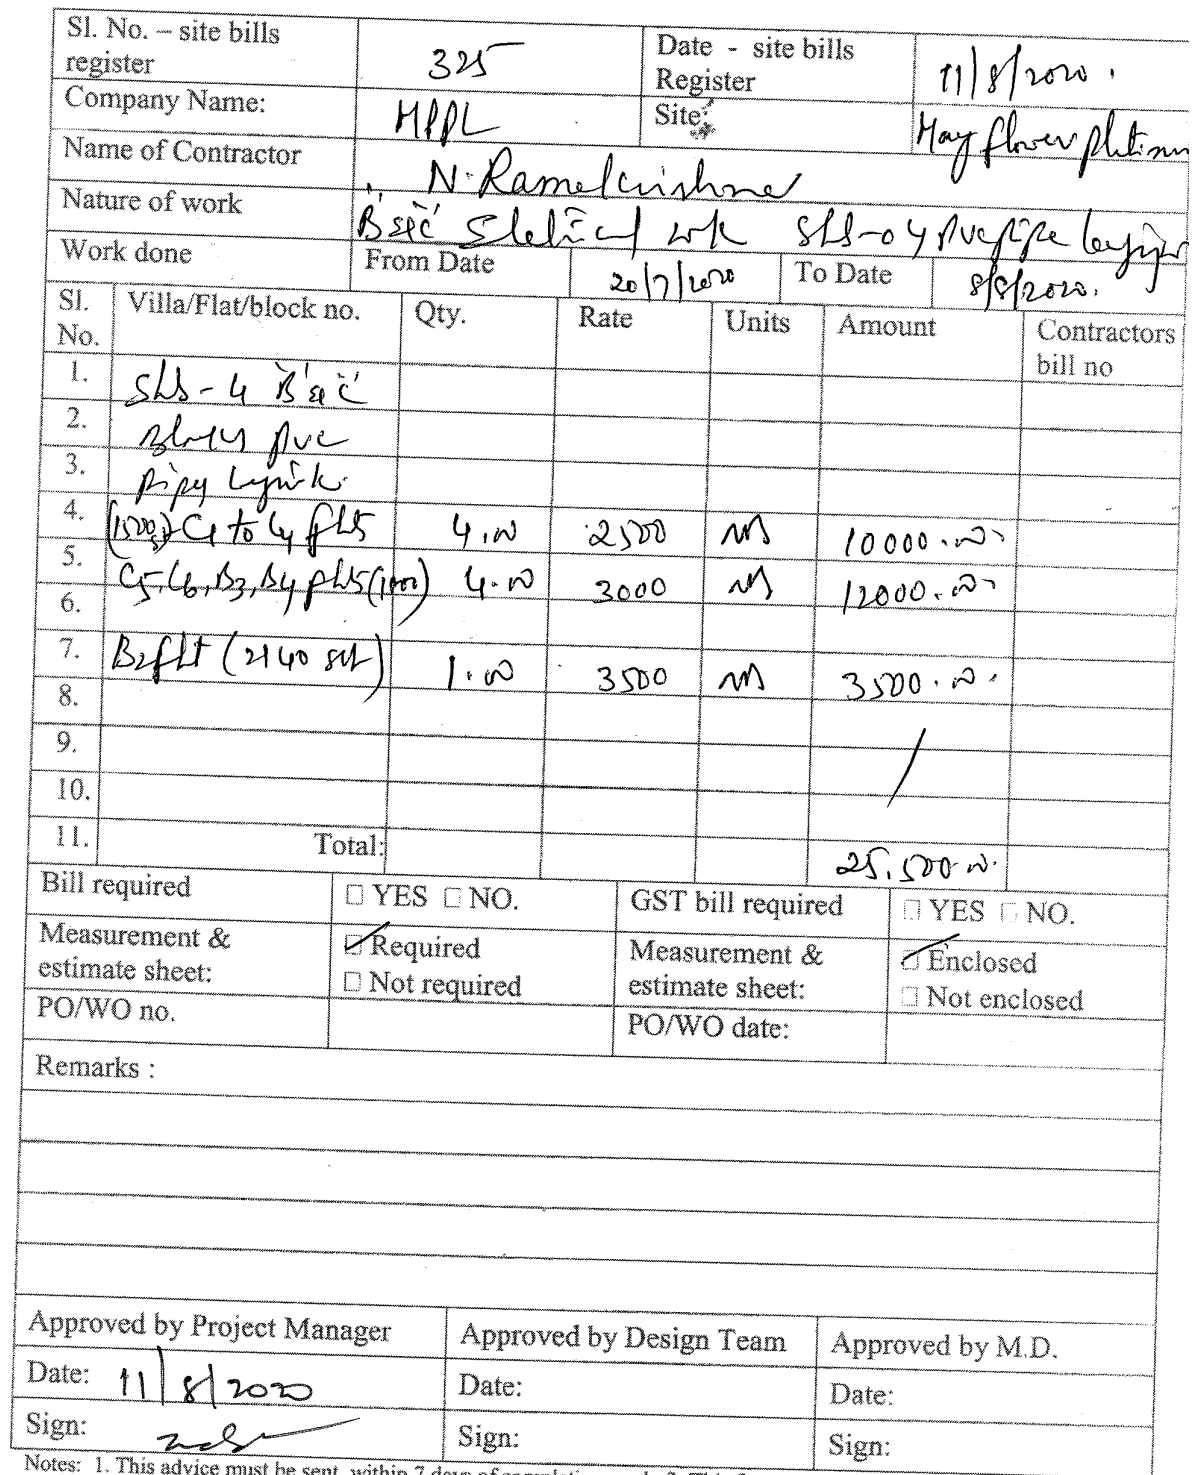 Sl. No. – site bills register 325 Date - site bills Register 11/8/2020.
Company Name: MPPL Site: May flower platinum
Name of Contractor N. Ramakrishna
Nature of work B & C Electrical wk slab-04 pvc pipe laying
Work done From Date 20/7/2020 To Date 8/8/2020.
Sl. No. Villa/Flat/block no. Qty. Rate Units Amount Contractors bill no
1. slab-4 B & C
2. Blocks pvc
3. pipe
4. C1 to C4 flats 4.00 2500 10000.00
5. C5, C6, B3, B4 flats 4.00 3000 12000.00
6.
7. B2 flat (2140 sft) 1.00 3500 3500.00
8.
9.
10.
11. Total: 25,500.00
Bill required □ YES □ NO. GST bill required □ YES □ NO.
Measurement & estimate sheet: ☑ Required □ Not required Measurement & estimate sheet: ☑ Enclosed □ Not enclosed
PO/WO no. PO/WO date:
Remarks :
Approved by Project Manager Approved by Design Team Approved by M.D.
Date: 11/8/2020 Date: Date:
Sign: Sign: Sign:
Notes: 1. This advice must be sent within 7 days of